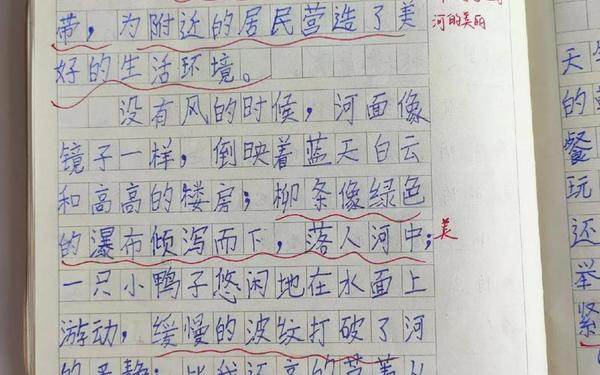 带，为附近的居民营造了美
河的美丽
好的生活环境。
没有风的时候，河面像
镜子一样，倒映着蓝天白云
和高高的楼房；柳条像绿色
的瀑布倾泻而下，落入河中；
美
一只小鸭子悠闲地在水面上
游动，缓慢的波纹打破了河
天
的
餐
玩
还
举
紧